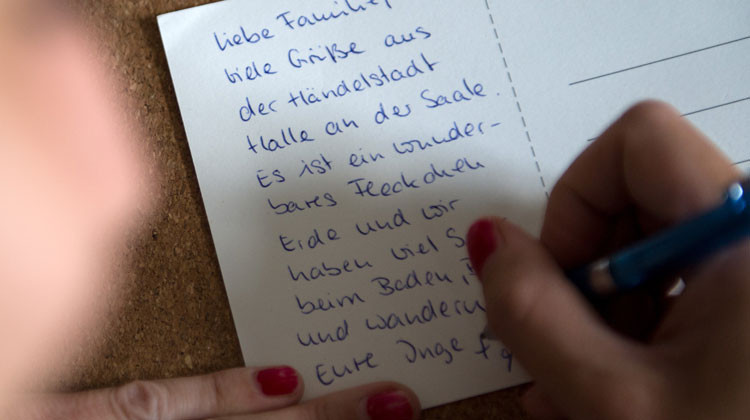 Liebe Familie,
viele Grüße aus
der Händelstadt
Halle an der Saale.
Es ist ein wunder-
bares Fleckchen
Erde und wir
haben viel
beim Baden,
und wandern
Eure Inge